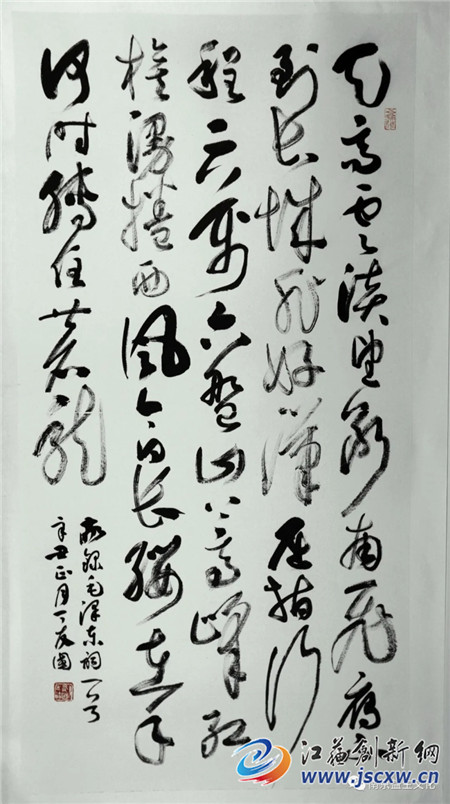 天高雲淡望断南飞雁不
到长城非好漢屈指行
程六盘山上高峰红
旗漫捲西风今日长缨在手
何时缚住苍龙
敬録毛泽东词一首
辛丑正月丁友國
江蘇創新網
www.jscxw.cn